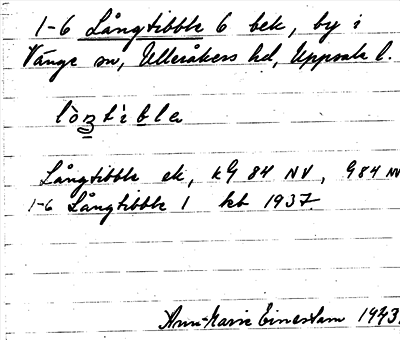 1-6 Långtibble 6 bek, by i
Vänge sn, Ulleråkers hd, Uppsala l.
lòŋtìbla
Långtibble ek, kG 84 NV, G84 NV
1-6 Långtibble 1 kb 1937.
Ann-Marie Einestam 1943.